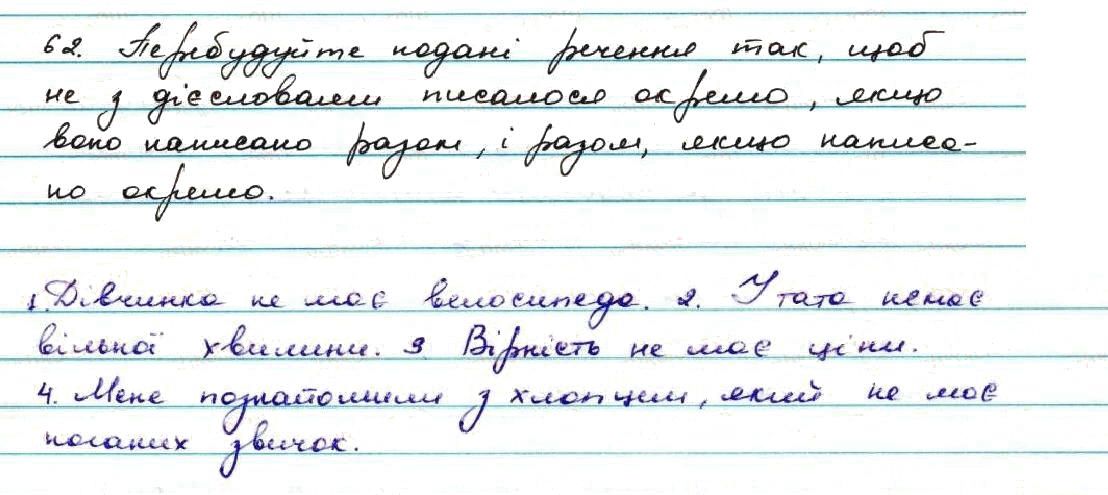 62. Перебудуйте подані речення так, щоб
не з дієсловами писалося окремо, якщо
воно написано разом, і разом, якщо написа-
но окремо.
1. Дівчинка не має велосипеда. 2. У тата немає
вільної хвилини. 3 Вірність не має ціни.
4. Мене познайомили з хлопцем, який не має
поганих звичок.